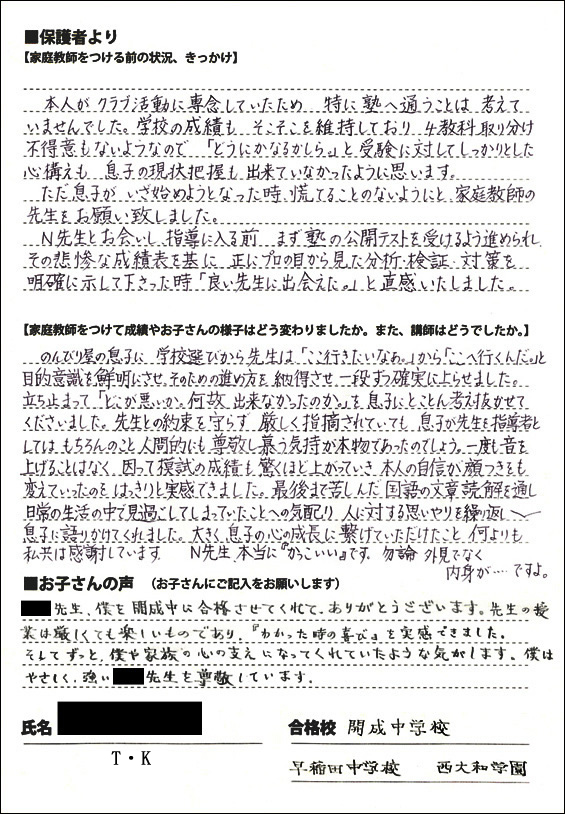 ■保護者より
【家庭教師をつける前の状況、きっかけ】
本人が クラブ活動に専念していたため 特に塾へ通うことは 考えて
いませんでした。学校の成績も そこそこを維持しており 4教科取り分け
不得意もないようなので 「どうにかなるかしら。」と受験に対してしっかりとした
心構えも 息子の現状把握も出来ていなかったように思います。
ただ息子が いざ始めようとなった時、慌てることのないようにと 家庭教師の
先生をお願い致しました。
N先生とお会いし 指導に入る前 まず塾の公開テストを受けるよう進められ
その悲惨な成績表を基に 正にプロの目から見た分析・検証・対策を
明確に示して下さった時「良い先生に出会えた。」と直感いたしました。
【家庭教師をつけて成績やお子さんの様子はどう変わりましたか。また、講師はどうでしたか。】
のんびり屋の息子に 学校選びから先生は「ここ行きたいなあ。」から「ここへ行くんだ。」と
目的意識を鮮明にさせ、そのための進め方を納得させ 一段ずつ確実に上らせました。
立ち止まって「どこが悪いか。何故 出来なかったのか。」を息子にとことん考え抜かせて
くださいました。先生との約束を守らず 厳しく指摘されていても 息子が先生を指導者と
してはもちろんのこと人間的にも尊敬し慕う気持が本物であったのでしょう。一度も音を
上げることはなく 因って模試の成績も驚くほど上がっていき 本人の自信が顔つきをも
変えていったのをはっきりと実感できました。最後まで苦しんだ国語の文章読解を通し
日常の生活の中で見過ごしてしまっていたことへの気配り 人に対する思いやりを繰り返し
息子に語りかけてくれました。大きく息子の心の成長に繋げていただけたこと 何よりも
私共は感謝しています N先生、本当に『かっこいい』です。勿論 外見でなく
内身が……ですよ。
■お子さんの声 （お子さんにご記入をお願いします）
先生、僕を開成中に合格させてくれて、ありがとうございます。先生の授
業は厳しくても楽しいものであり、『わかった時の喜び』を実感できました。
そしてずっと、僕や家族の心の支えになってくれていたような気がします。僕は
やさしく、強い 先生を尊敬しています。
氏名
T・K
合格校 開成中学校
早稲田中学校 西大和学園